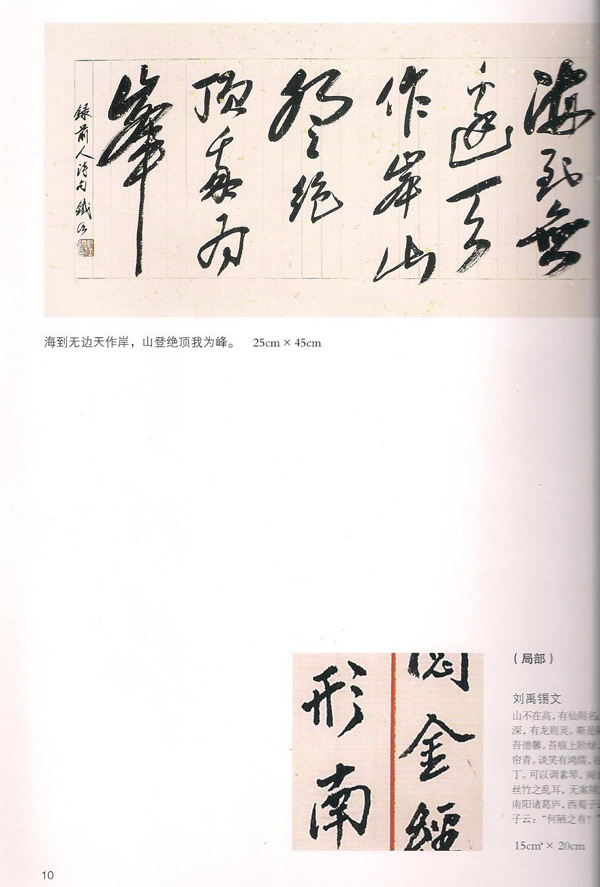 海到無
邊天
作岸山
登絕
頂我為
峯
録前人詩句 鐵
海到无边天作岸，山登绝顶我为峰。 25cm × 45cm
閱金經
形南
（局部）
刘禹锡文
山不在高，有仙则名。
深，有龙则灵。斯是
吾德馨。苔痕上阶绿，
帘青。谈笑有鸿儒，往
丁。可以调素琴，阅金
丝竹之乱耳，无案牍
南阳诸葛庐，西蜀子云
子云：“何陋之有？”
15cm × 20cm
10